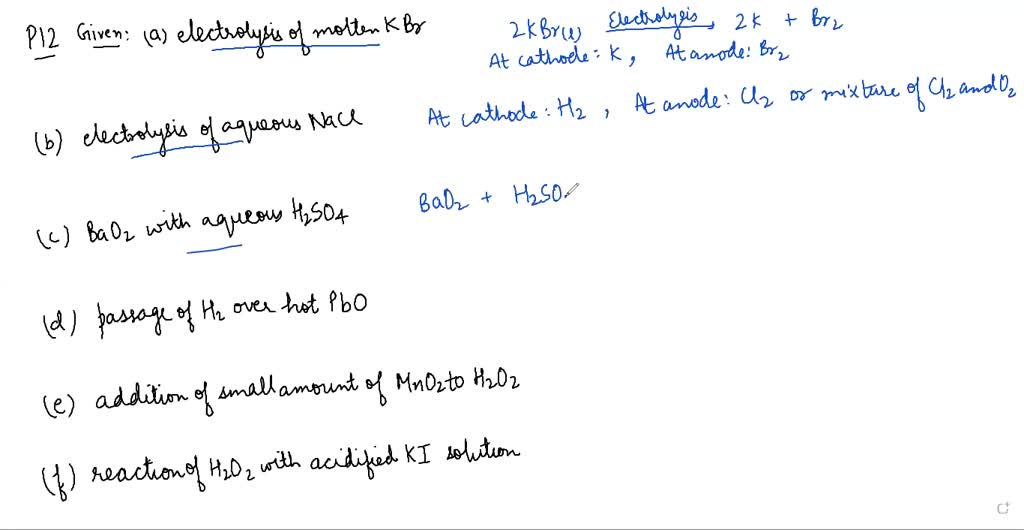 P12 Given: (a) electrolysis of molten KBr 2KBr(l) Electrolysis 2K + Br2
At cathode: K, At anode: Br2
(b) electrolysis of aqueous NaCl At cathode: H2, At anode: Cl2 or mixture of Cl2 and O2
(c) BaO2 with aqueous H2SO4 BaO2 + H2SO
(d) passage of H2 over hot PbO
(e) addition of small amount of MnO2 to H2O2
(f) reaction of H2O2 with acidified KI solution